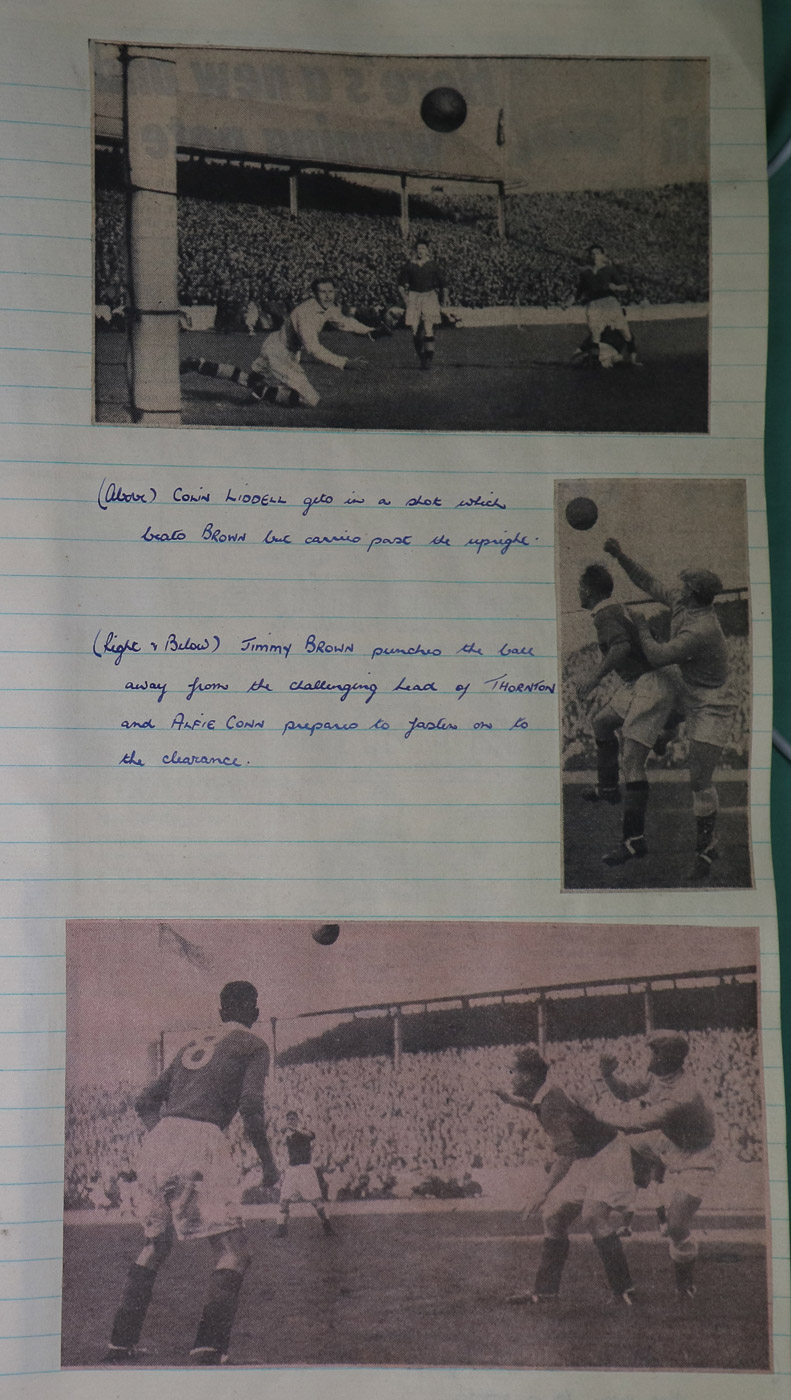 Here's a new
winning note
(Above) COLIN LIDDELL gets in a shot which
beats BROWN but carries past the upright.
(Right & Below) JIMMY BROWN punches the ball
away from the challenging head of THORNTON
and ALFIE CONN prepares to fasten on to
the clearance.
8